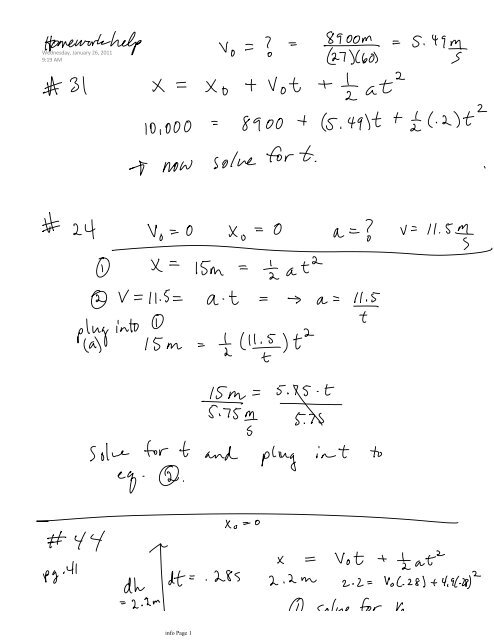 Homework help
Wednesday, January 26, 2011
9:19 AM
V₀ = ? = 8900m / (27)(60) = 5.49 m/s
# 31 x = x₀ + V₀t + 1/2 at²
10,000 = 8900 + (5.49)t + 1/2 (.2)t²
→ now solve for t.
# 24 V₀ = 0 x₀ = 0 a = ? v = 11.5 m/s
① x = 15m = 1/2 at²
② V = 11.5 = a·t = → a = 11.5/t
plug into ①
(a) 15m = 1/2 (11.5/t) t²
15m / 5.75 m/s = 5.75·t / 5.75
solve for t and plug in t to
eq. ②.
x₀ = 0
# 44
pg. 41
dh = 2.2m
dt = .28s
x = V₀t + 1/2 at²
2.2m 2.2 = V₀(.28) + 4.9(.28)²
① solve for V₀
info Page 1